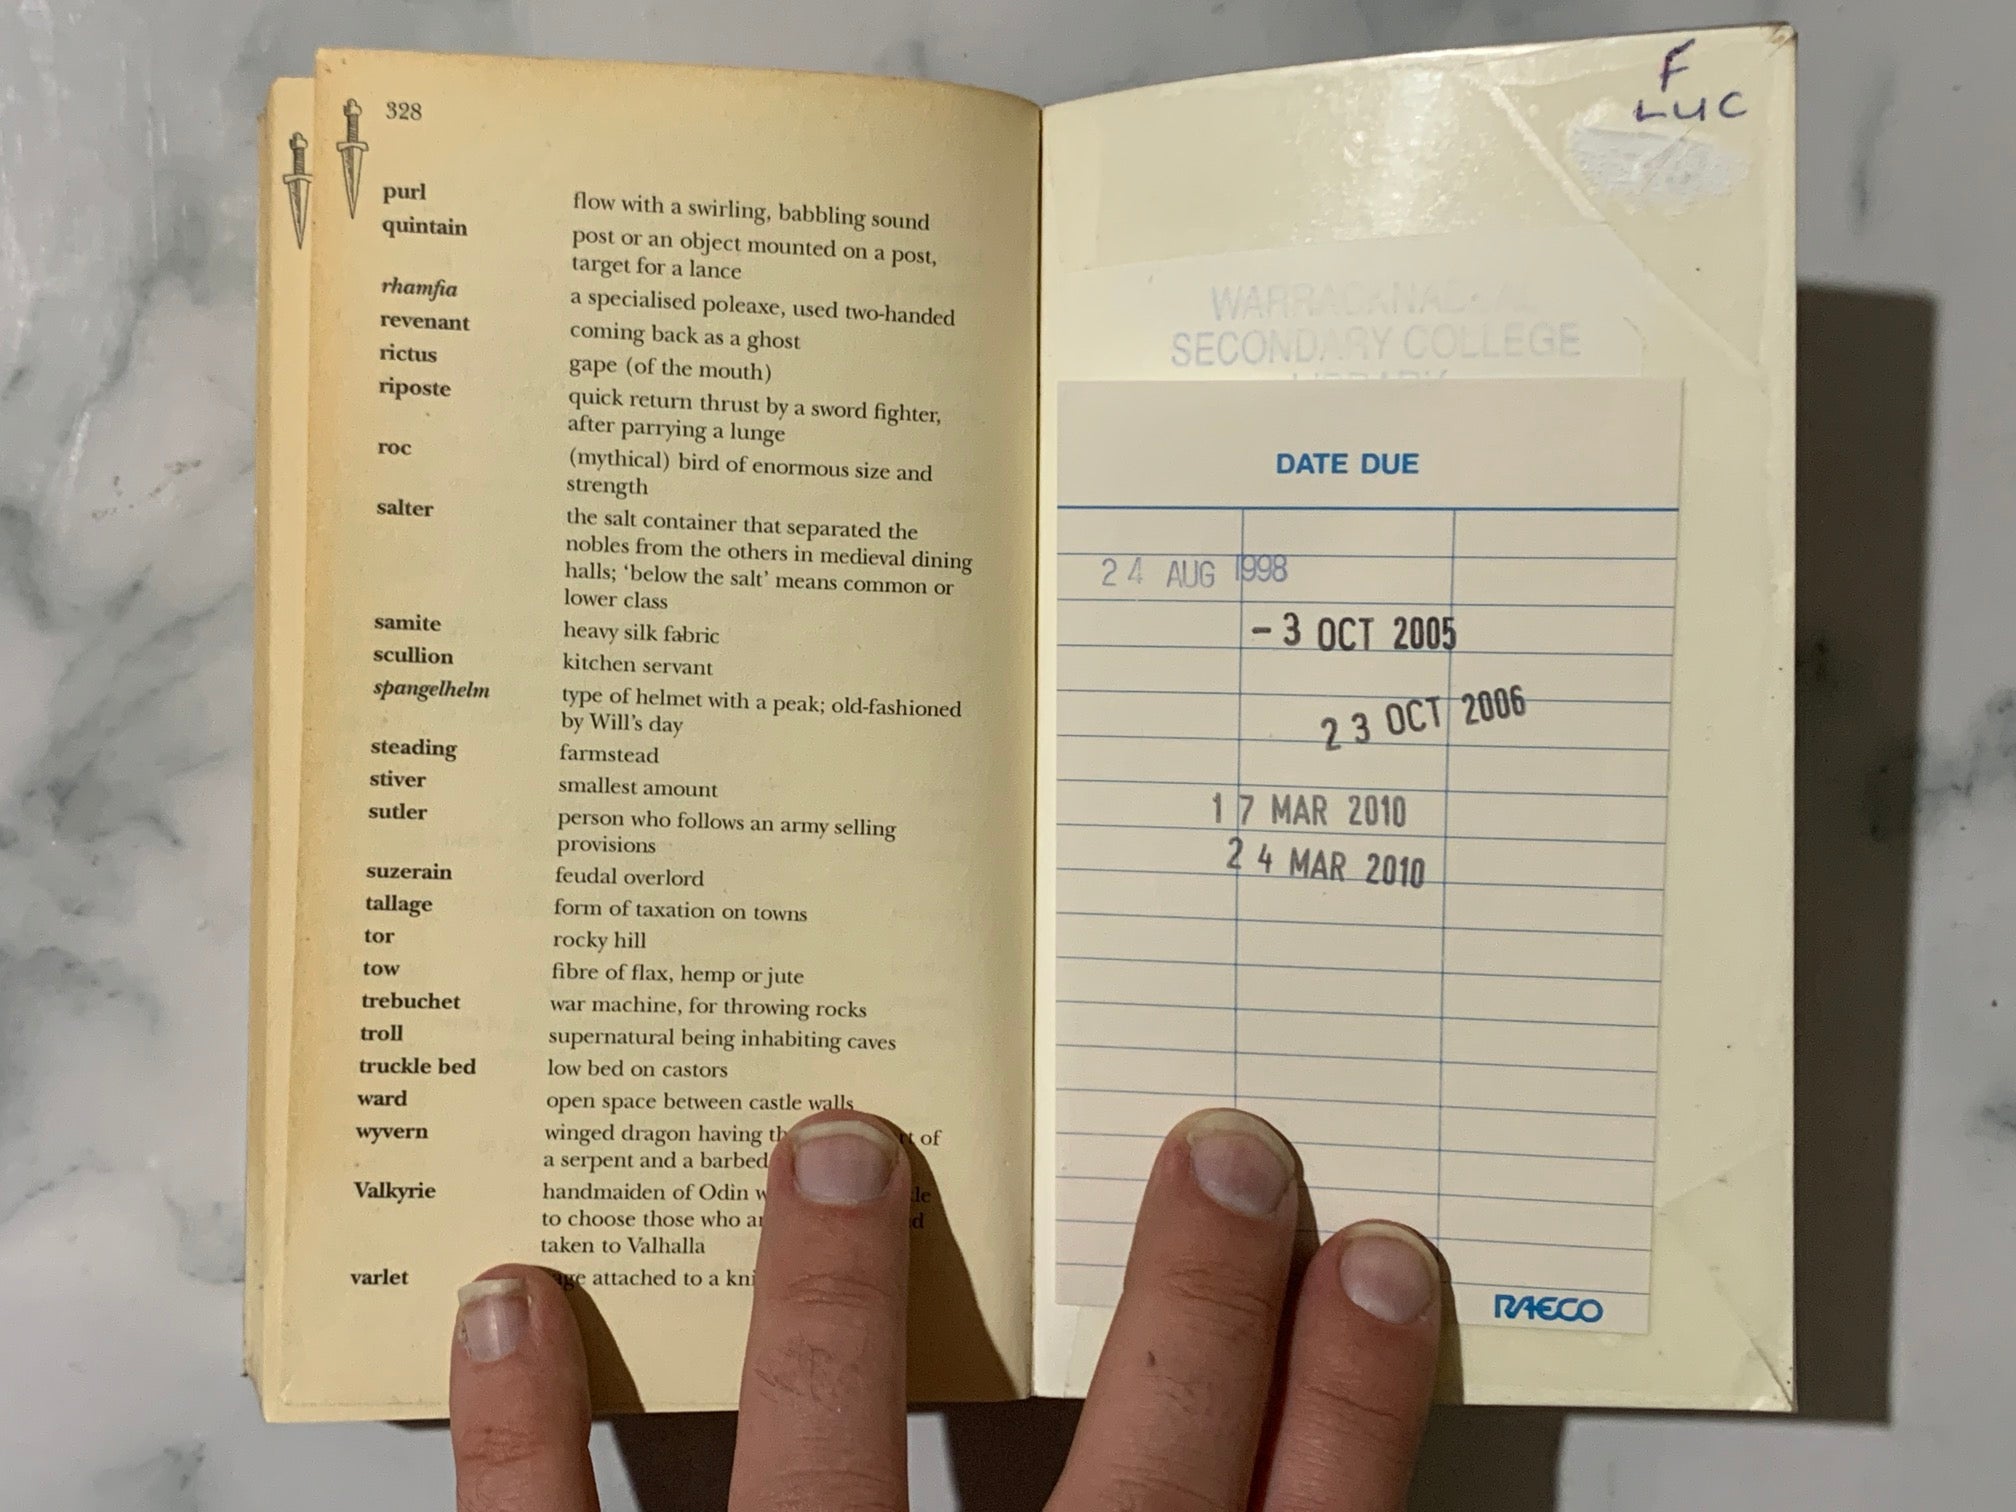 328
purl flow with a swirling, babbling sound
quintain post or an object mounted on a post,
target for a lance
rhamfia a specialised poleaxe, used two-handed
revenant coming back as a ghost
rictus gape (of the mouth)
riposte quick return thrust by a sword fighter,
after parrying a lunge
roc (mythical) bird of enormous size and
strength
salter the salt container that separated the
nobles from the others in medieval dining
halls; 'below the salt' means common or
lower class
samite heavy silk fabric
scullion kitchen servant
spangelhelm type of helmet with a peak; old-fashioned
by Will's day
steading farmstead
stiver smallest amount
sutler person who follows an army selling
provisions
suzerain feudal overlord
tallage form of taxation on towns
tor rocky hill
tow fibre of flax, hemp or jute
trebuchet war machine, for throwing rocks
troll supernatural being inhabiting caves
truckle bed low bed on castors
ward open space between castle walls
wyvern winged dragon having of
a serpent and a barbed
Valkyrie handmaiden of Odin
to choose those who
taken to Valhalla
varlet attached to a
F
LUC
SECONDARY COLLEGE
LIBRARY
DATE DUE
24 AUG 1998
-3 OCT 2005
23 OCT 2006
17 MAR 2010
24 MAR 2010
RAECO